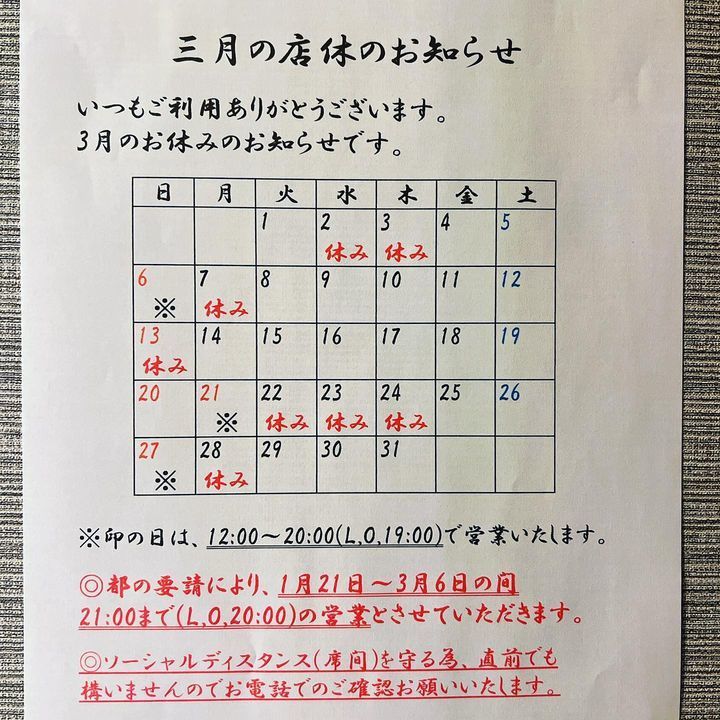 三月の店休のお知らせ
いつもご利用ありがとうございます。
3月のお休みのお知らせです。
日 月 火 水 木 金 土
1 2 3 4 5
休み 休み
6 7 8 9 10 11 12
※ 休み
13 14 15 16 17 18 19
休み
20 21 22 23 24 25 26
※ 休み 休み 休み
27 28 29 30 31
※ 休み
※印の日は、12:00～20:00(L,O,19:00)で営業いたします。
◎都の要請により、1月21日～3月6日の間
21:00まで(L,O,20:00)の営業とさせていただきます。
◎ソーシャルディスタンス(席間)を守る為、直前でも
構いませんのでお電話でのご確認お願いいたします。